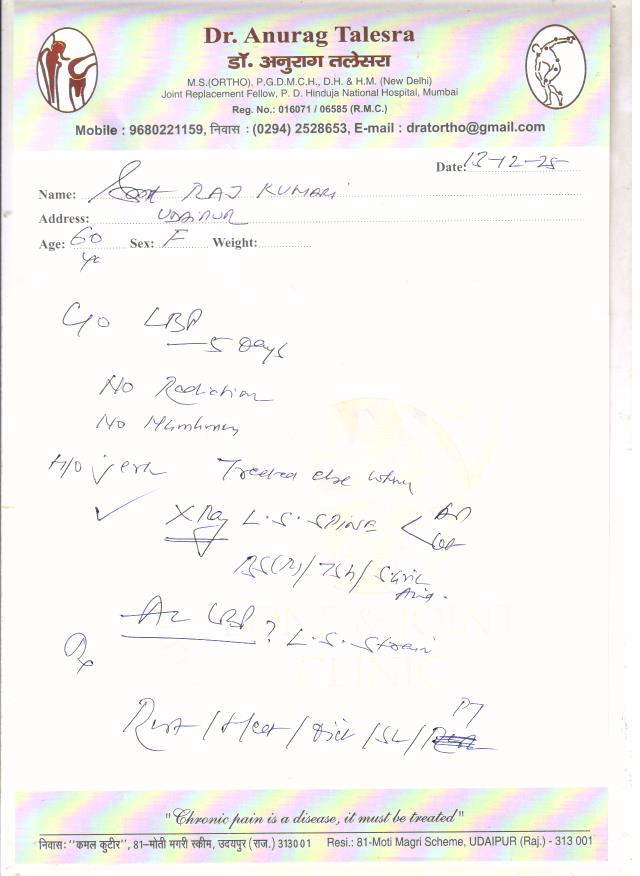 Dr. Anurag Talesra
डॉ. अनुराग तलेसरा
M.S.(ORTHO), P.G.D.M.C.H., D.H. & H.M. (New Delhi)
Joint Replacement Fellow, P. D. Hinduja National Hospital, Mumbai
Reg. No.: 016071 / 06585 (R.M.C.)
Mobile : 9680221159, निवास : (0294) 2528653, E-mail : dratortho@gmail.com
Date: 13-12-25
Name: RAJ KUMARI
Address: UDAIPUR
Age: 60 Sex: F Weight:
yr
C/o LBP
5 Days
No Radiation
No Numbness
H/o jerk Treated else where
✓ X Ray L.S. SPINE < AP
BS(R)/TSH/S.Uric
Acid.
Ac LBP ? L.S. Strain
BONE & JOINT
CLINIC
Rx
Rest / Heat / Diet / SL /
PT
"Chronic pain is a disease, it must be treated"
निवास: "कमल कुटीर", 81–मोती मगरी स्कीम, उदयपुर (राज.) 313001 Resi.: 81-Moti Magri Scheme, UDAIPUR (Raj.) - 313 001